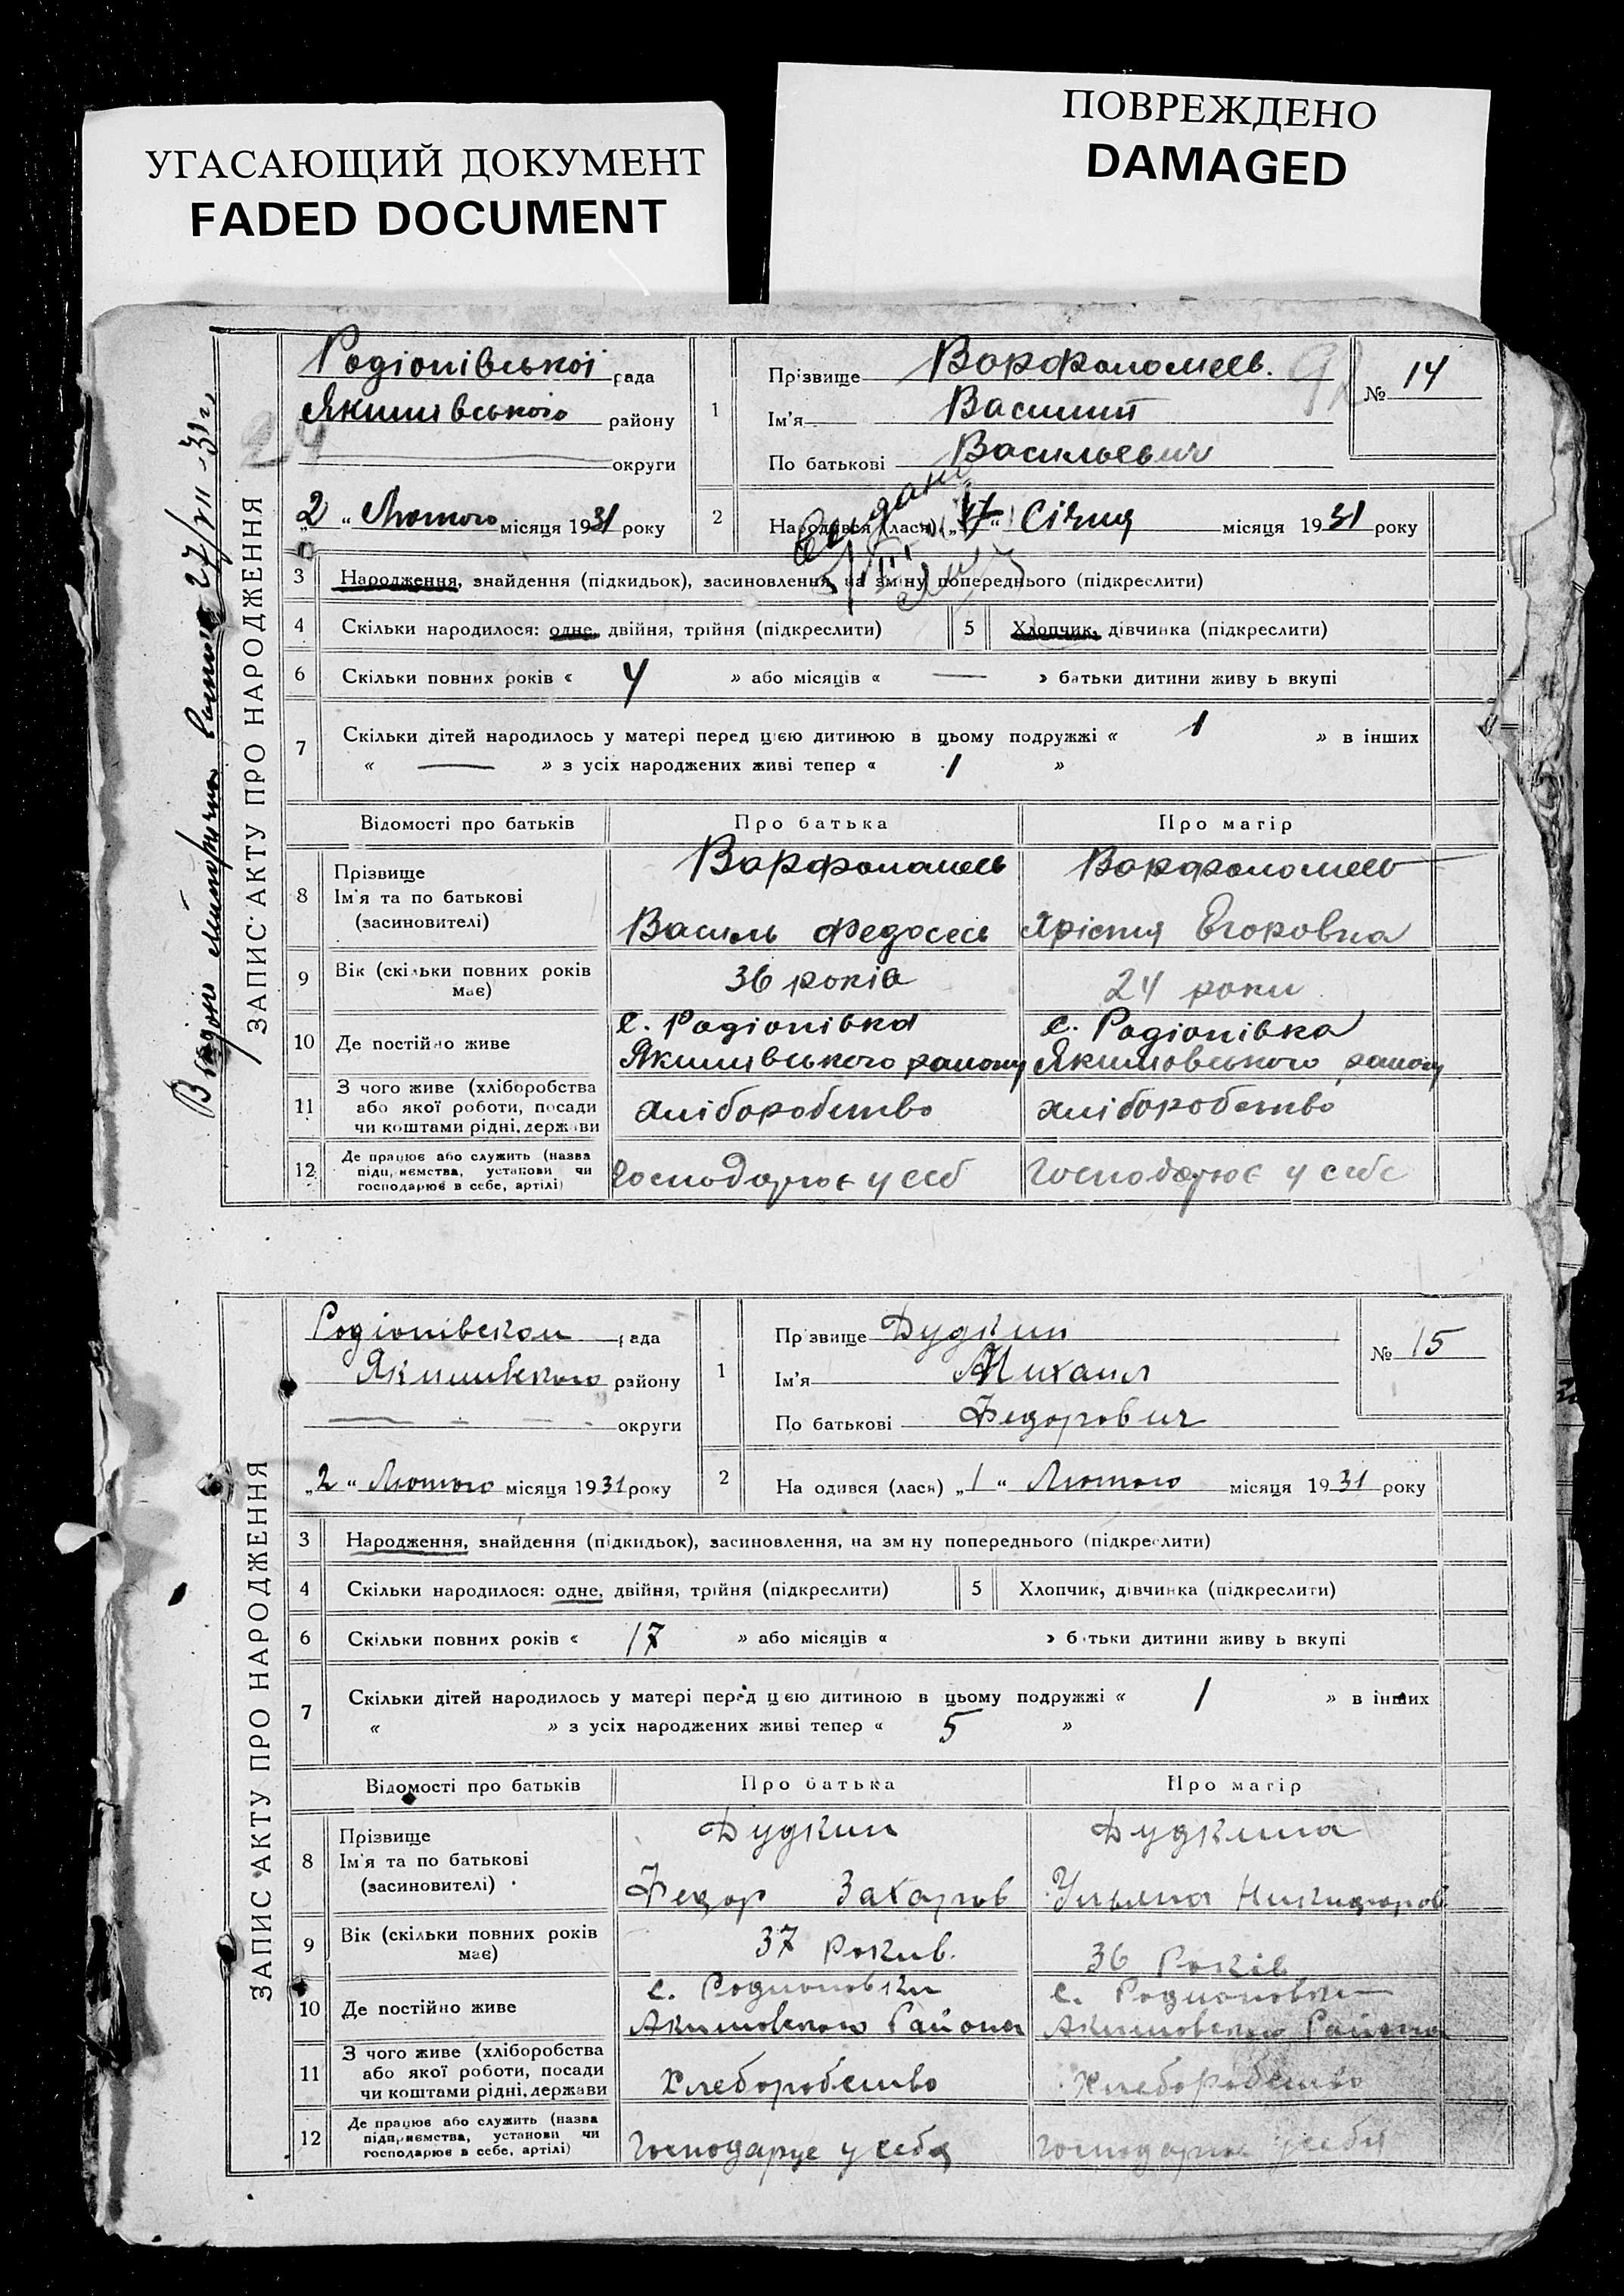 УГАСАЮЩИЙ ДОКУМЕНТ
FADED DOCUMENT
ПОВРЕЖДЕНО
DAMAGED
ЗАПИС АКТУ ПРО НАРОДЖЕННЯ
Родіонівської рада
Якимівського району
округи
„2“ Лютого місяця 1931 року
1
Прізвище Ворфоломеев.
Ім'я Василит
По батькові Васильевич
№ 14
2 Народився (лася) „17“ Січня місяця 1931 року
3 Народження, знайдення (підкидьок), засиновлення, на зміну попереднього (підкреслити)
4 Скільки народилося: одне, двійня, трійня (підкреслити)
5 Хлопчик, дівчинка (підкреслити)
6 Скільки повних років « 4 » або місяців « — » батьки дитини живу ь вкупі
7 Скільки дітей народилось у матері перед цією дитиною в цьому подружжі « 1 » в інших
« — » з усіх народжених живі тепер « 1 »
Відомості про батьків Про батька Про матір
8 Прізвище
Ім'я та по батькові
(засиновителі)
Ворфоломеев
Василь Федосеев
Ворфоломеев
Хрістия Егоровна
9 Вік (скільки повних років має)
36 років
24 роки
10 Де постійно живе
с. Родіонівка
Якимівського району
с. Родіонівка
Якимовського району
11 З чого живе (хліборобства
або якої роботи, посади
чи коштами рідні, держави
хліборобство
хліборобство
12 Де працює або служить (назва
підприємства, установи чи
господарює в себе, артілі)
Господарює у себ
Господарює у себе
ЗАПИС АКТУ ПРО НАРОДЖЕННЯ
Родіонівскои рада
Якимивского району
округи
„2“ Лютого місяця 1931 року
1
Прізвище Дудкин
Ім'я Михаил
По батькові Федорович
№ 15
2 На одився (лася) „1“ Лютого місяця 1931 року
3 Народження, знайдення (підкидьок), засиновлення, на зм ну попереднього (підкреслити)
4 Скільки народилося: одне, двійня, трійня (підкреслити)
5 Хлопчик, дівчинка (підкреслити)
6 Скільки повних років « 17 » або місяців « » батьки дитини живу ь вкупі
7 Скільки дітей народилось у матері перед цією дитиною в цьому подружжі « 1 » в інших
« » з усіх народжених живі тепер « 5 »
Відомості про батьків Про батька Про матір
8 Прізвище
Ім'я та по батькові
(засиновителі)
Дудкин
Федор Захаров
Дудкина
Ульяна Никифоров
9 Вік (скільки повних років має)
37 Рокив.
36 Років
10 Де постійно живе
с. Родионовки
Акимовского Района
с. Родионовки
Акимовского Района
11 З чого живе (хліборобства
або якої роботи, посади
чи коштами рідні, держави
Хлеборобство
Хлеборобство
12 Де працює або служить (назва
підприємства, установи чи
господарює в себе, артілі)
Господарує у себя
Господарює у себя